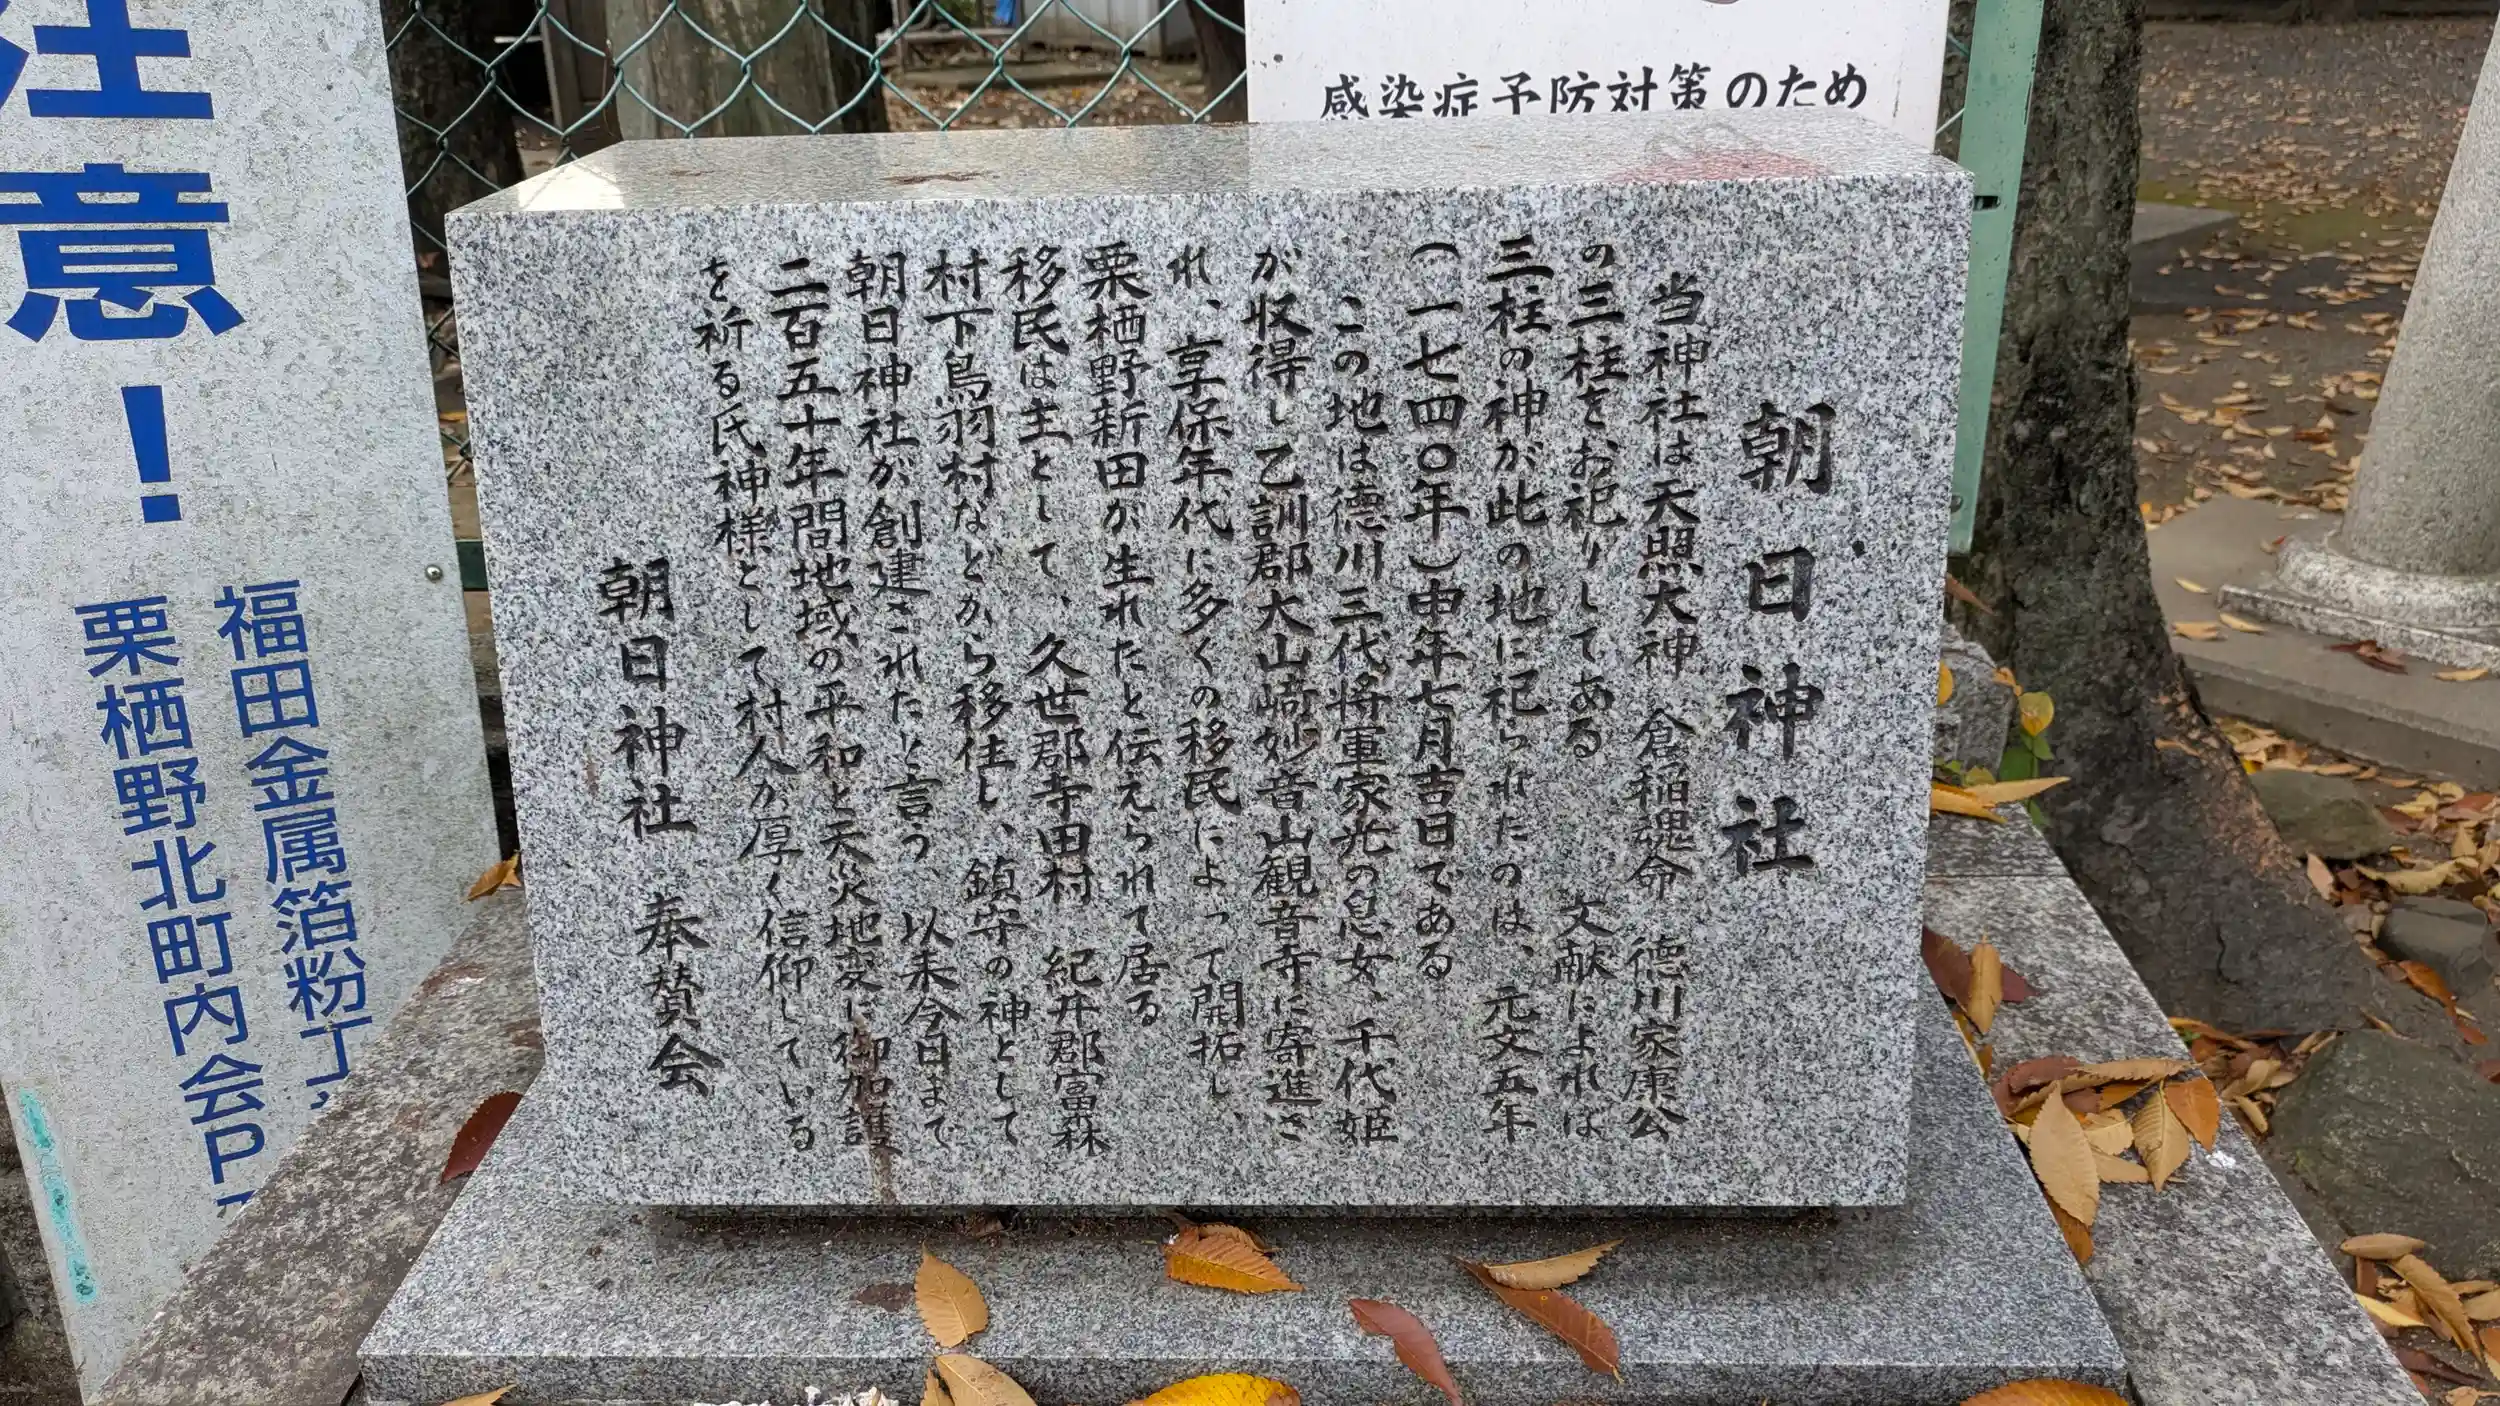 朝日神社
当神社は天照大神 倉稲魂命 徳川家康公
の三柱をお祀りしてある 文献によれば
三柱の神が此の地に祀られたのは、元文五年
(一七四〇年)申年七月吉日である
この地は徳川三代将軍家光の息女、千代姫
が収得し乙訓郡大山崎妙音山観音寺に寄進さ
れ、享保年代に多くの移民によって開拓し、
栗栖野新田が生れたと伝えられて居る
移民は主として、久世郡寺田村 紀井郡富森
村下鳥羽村などから移住し、鎮守の神として
朝日神社が創建されたと言う、以来今日まで
二百五十年間地域の平和と天災地変に御加護
を祈る氏神様として村人が厚く信仰している
朝日神社 奉賛会
感染症予防対策のため
注意!
福田金属箔粉工
栗栖野北町内会P